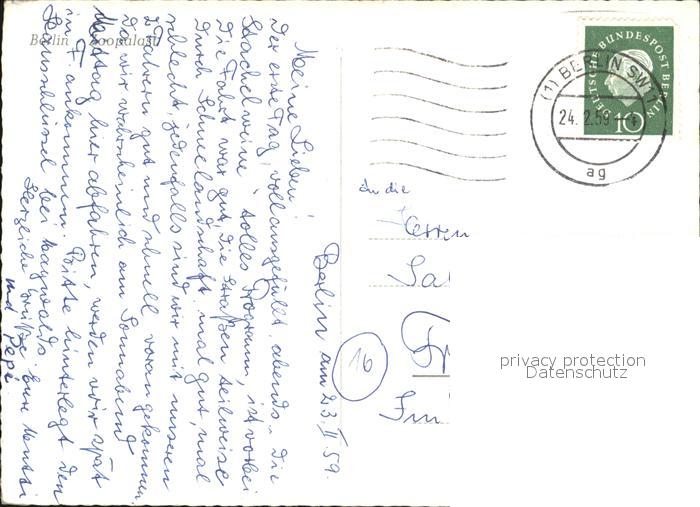 Berlin Zoopalast
Berlin am 23. II 59.
Meine Lieben!
Der erste Tag, vollausgefüllt abends „Die
Stachelweine", tolles Programm, ist vorbei
Die Fahrt war gut die Straßen teilweise
durch Schneelandschaft mal gut, mal
schlecht, jedenfalls sind wir mit unseren
gut und schnell vorangekommen.
Da wir wahrscheinlich am Sonnabend
Mittag hier abfahren, werden wir spät
in F. ankommen. Bitte hinterlegt den
Hausschlüssel bei
Herzliche Grüße Eure Mutti
und Papi
An die
Herren
Sa
Fr
Im
16
DEUTSCHE BUNDESPOST BERLIN
10
(1) BERLIN SW 11
24. 2. 59
ag
privacy protection
Datenschutz